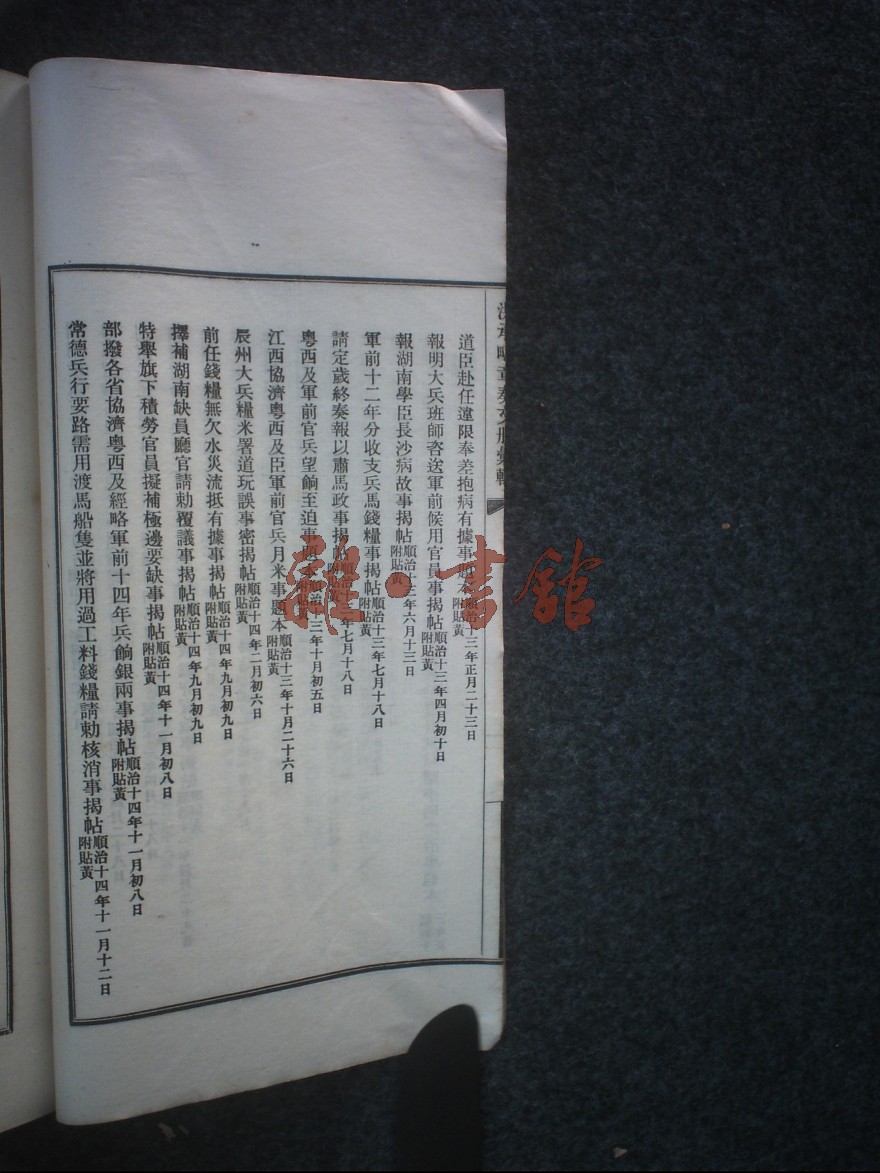 章奏文冊彙輯
道臣赴任違限奉差抱病有據事題本順治十三年正月二十三日附貼黃
報明大兵班師咨送軍前候用官員事揭帖順治十三年四月初十日附貼黃
報湖南學臣長沙病故事揭帖順治十三年六月十三日附貼黃
軍前十二年分收支兵馬錢糧事揭帖順治十三年七月十八日附貼黃
請定歲終奏報以肅馬政事揭帖順治十三年七月十八日附貼黃
粵西及軍前官兵望餉至迫事題本順治十三年十月初五日附貼黃
江西協濟粵西及臣軍前官兵月米事題本順治十三年十月二十六日附貼黃
辰州大兵糧米署道玩誤事密揭帖順治十四年二月初六日附貼黃
前任錢糧無欠水災流抵有據事揭帖順治十四年九月初九日附貼黃
擇補湖南缺員廳官請勅覆議事揭帖順治十四年九月初九日附貼黃
特舉旗下積勞官員擬補極邊要缺事揭帖順治十四年十一月初八日附貼黃
部撥各省協濟粵西及經略軍前十四年兵餉銀兩事揭帖順治十四年十一月初八日附貼黃
常德兵行要路需用渡馬船隻並將用過工料錢糧請勅核消事揭帖順治十四年十一月十二日附貼黃
雜·書館